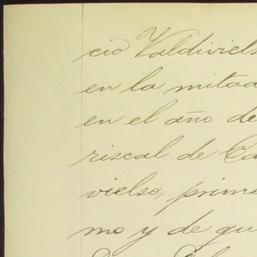 cio Valdiviels
en la mitad
en el año de
riscal de Ca
vielso, prime
mo y de gu